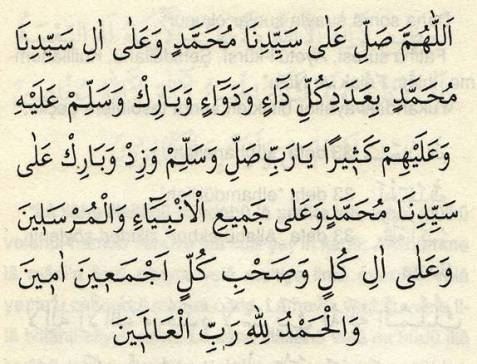 اَللّٰهُمَّ صَلِّ عَلٰى سَيِّدِنَا مُحَمَّدٍ وَعَلٰى اٰلِ سَيِّدِنَا
مُحَمَّدٍ بِعَدَدِ كُلِّ دَٓاءٍ وَدَوَٓاءٍ وَبَارِكْ وَسَلِّمْ عَلَيْهِ
وَعَلَيْهِمْ كَثٖيرًا يَارَبِّ صَلِّ وَسَلِّمْ وَزِدْ وَبَارِكْ عَلٰى
سَيِّدِنَا مُحَمَّدٍ وَعَلٰى جَمٖيعِ الْاَنْبِيَٓاءِ وَالْمُرْسَلٖينَ
وَعَلٰى اٰلِ كُلٍّ وَصَحْبِ كُلٍّ اَجْمَعٖينَ اٰمٖينَ
وَالْحَمْدُ لِلّٰهِ رَبِّ الْعَالَمٖينَ